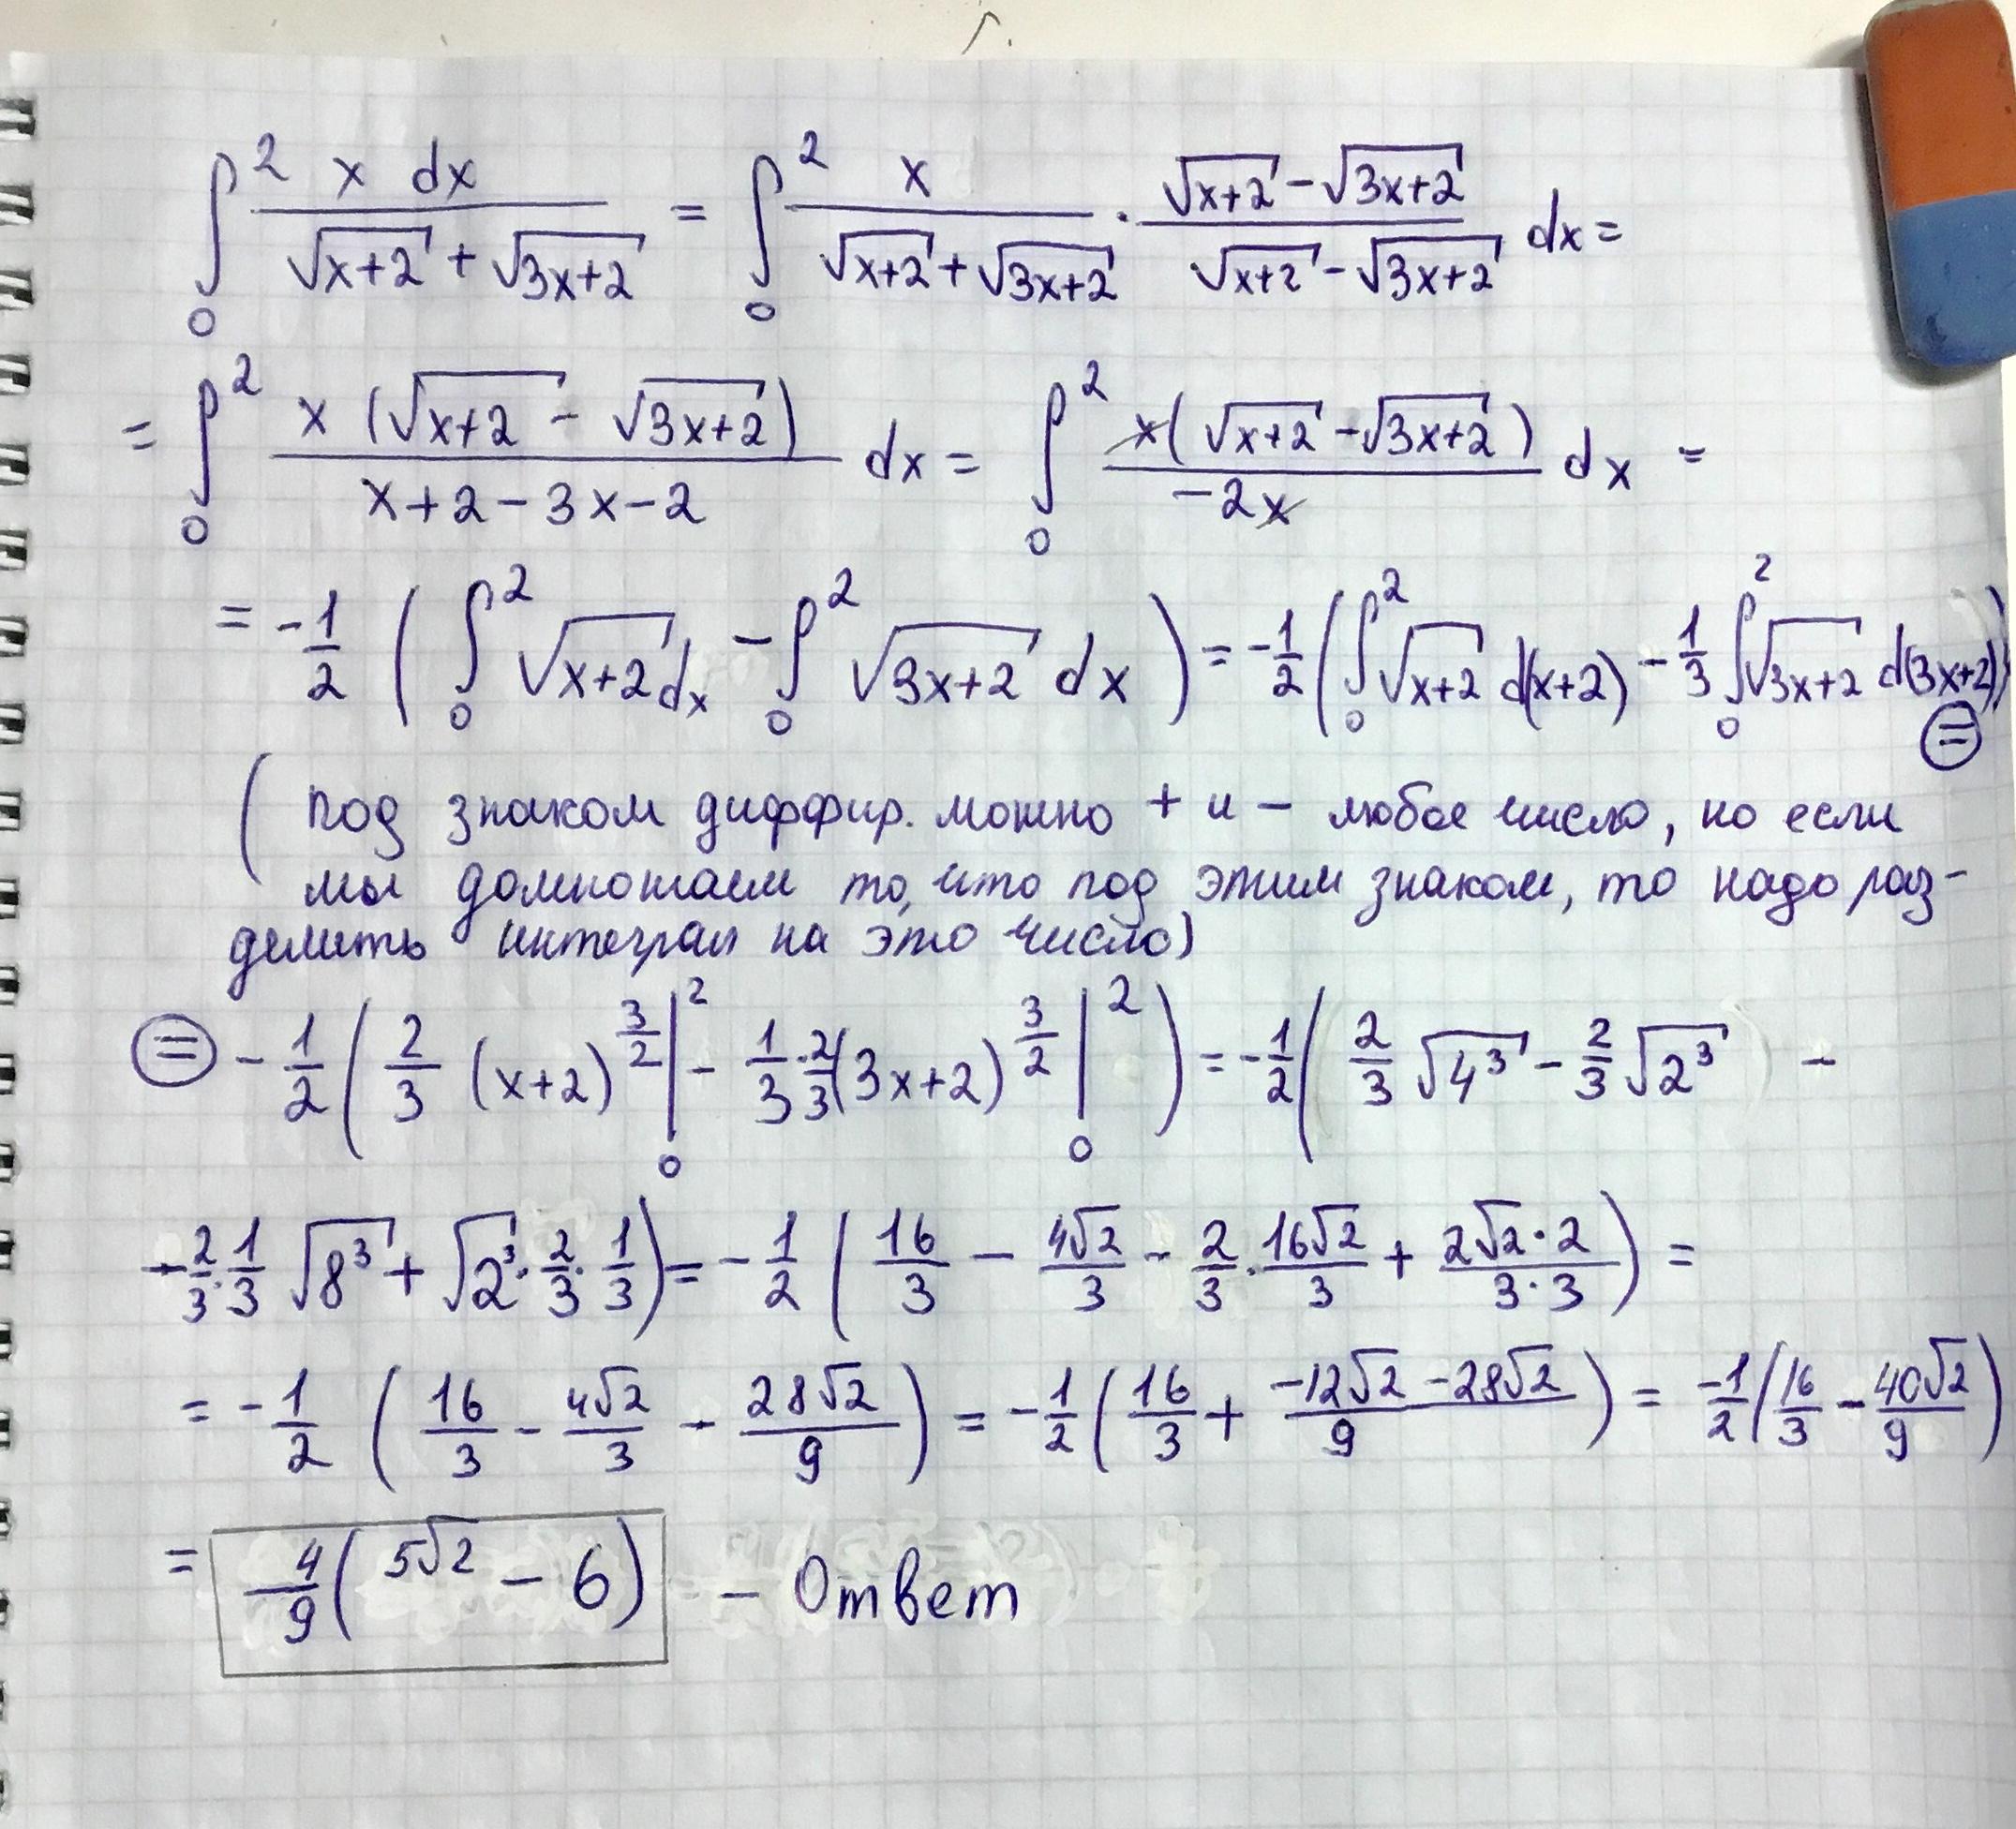 ∫₀² x dx / (√(x+2) + √(3x+2)) = ∫₀² x / (√(x+2) + √(3x+2)) · (√(x+2) − √(3x+2)) / (√(x+2) − √(3x+2)) dx =
= ∫₀² x (√(x+2) − √(3x+2)) / (x+2−3x−2) dx = ∫₀² x(√(x+2) − √(3x+2)) / (−2x) dx =
= −1/2 ( ∫₀² √(x+2) dx − ∫₀² √(3x+2) dx ) = −1/2 ( ∫₀² √(x+2) d(x+2) − 1/3 ∫₀² √(3x+2) d(3x+2) ) ⊜
( под знаком диффир. можно + и − любое число, но если
мы домножаем то, что под этим знаком, то надо раз-
делить интеграл на это число)
⊜ −1/2 ( 2/3 (x+2)^(3/2) |₀² − 1/3 · 2/3 (3x+2)^(3/2) |₀² ) = −1/2 ( 2/3 √(4³) − 2/3 √(2³) −
− 2/3 · 1/3 √(8³) + √(2³) · 2/3 · 1/3 ) = −1/2 ( 16/3 − 4√2/3 − 2/3 · 16√2/3 + 2√2·2/(3·3) ) =
= −1/2 ( 16/3 − 4√2/3 − 28√2/9 ) = −1/2 ( 16/3 + (−12√2 − 28√2)/9 ) = −1/2 ( 16/3 − 40√2/9 )
= 4/9 ( 5√2 − 6 ) − Ответ